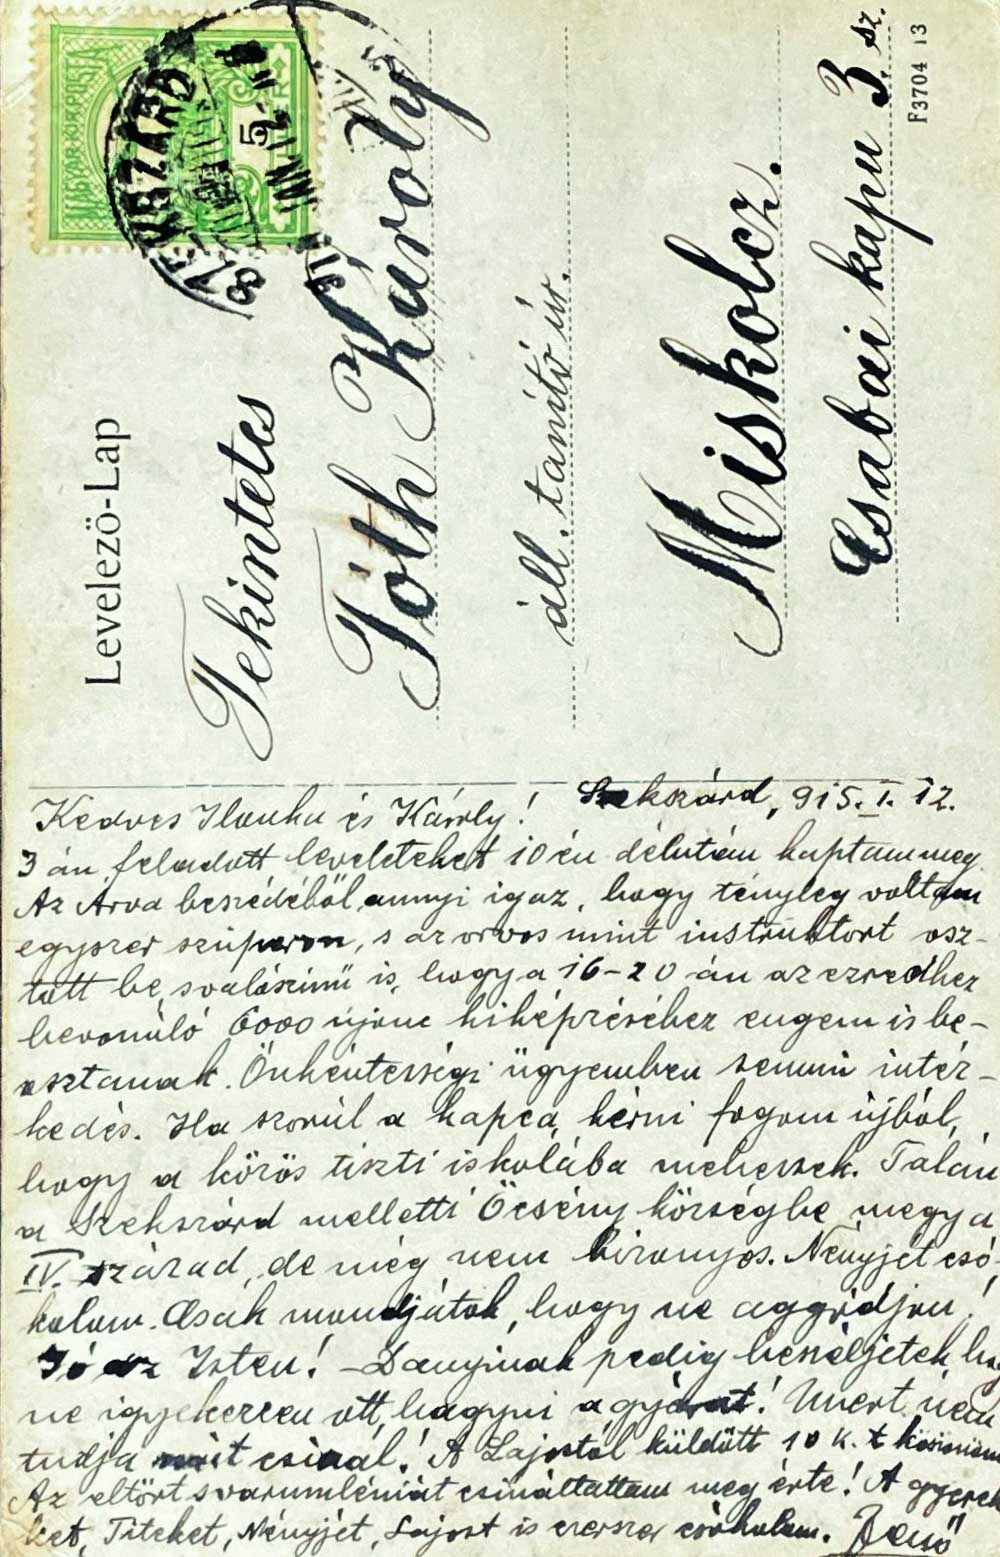 MAGYAR KIR. POSTA
SZEKSZÁRD
Levelező-Lap
Tekintetes
Tóth Károly
áll. tanító úr.
Miskolcz.
Csabai kapu 3. sz.
F3704 13
Szekszárd, 915. I. 12.
Kedves Ilonka és Károly!
3 án feladott leveleteket 10 én délután kaptam meg.
Az Árva beszédéből annyi igaz, hogy tényleg voltam
egyszer , s az orvos mint instruktort osz-
tott be, s valószinű is, hogy a 16-20 án az ezredhez
bevonúló 6000 újonc kiképzéséhez engem is be-
osztanak. Önkéntességi ügyemben semmi intéz-
kedés. Ha szorúl a kapca, kérni fogom újból,
hogy a körös tiszti iskolába mehessek. Talán
a Szekszárd melletti Őcsény községbe megy a
IV. század, de még nem bizonyos. Nényjét csó-
kolom. Csak mondjátok, hogy ne aggódjon!
Jó az Isten! - Danyinak pedig beszéljetek hogy
ne igyekezzen ott hagyni a gyárat! Mert nem
tudja mit csinál! A Lajostól küldött 10 K.t köszönöm
Az eltört svarumléniát csináltattam meg érte! A gyerek
ket, Titeket, Nényjét, Lajost is ezerszer csókolom. Benő